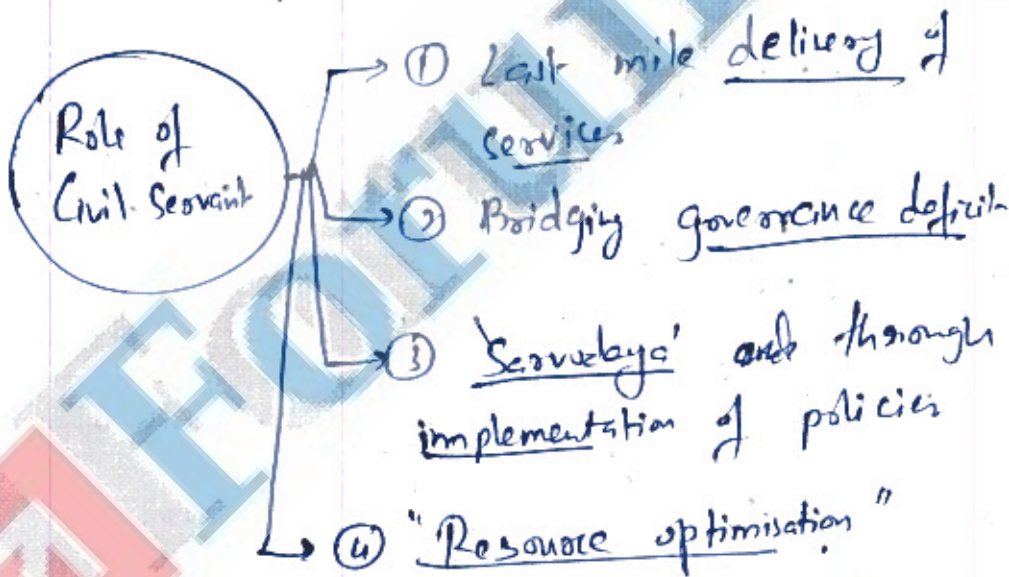 Role of
Civil Servant
① Last mile delivery of
services
② Bridging governance deficit
③ 'Sarvodaya' and through
implementation of policies
④ "Resource optimisation"
Forum